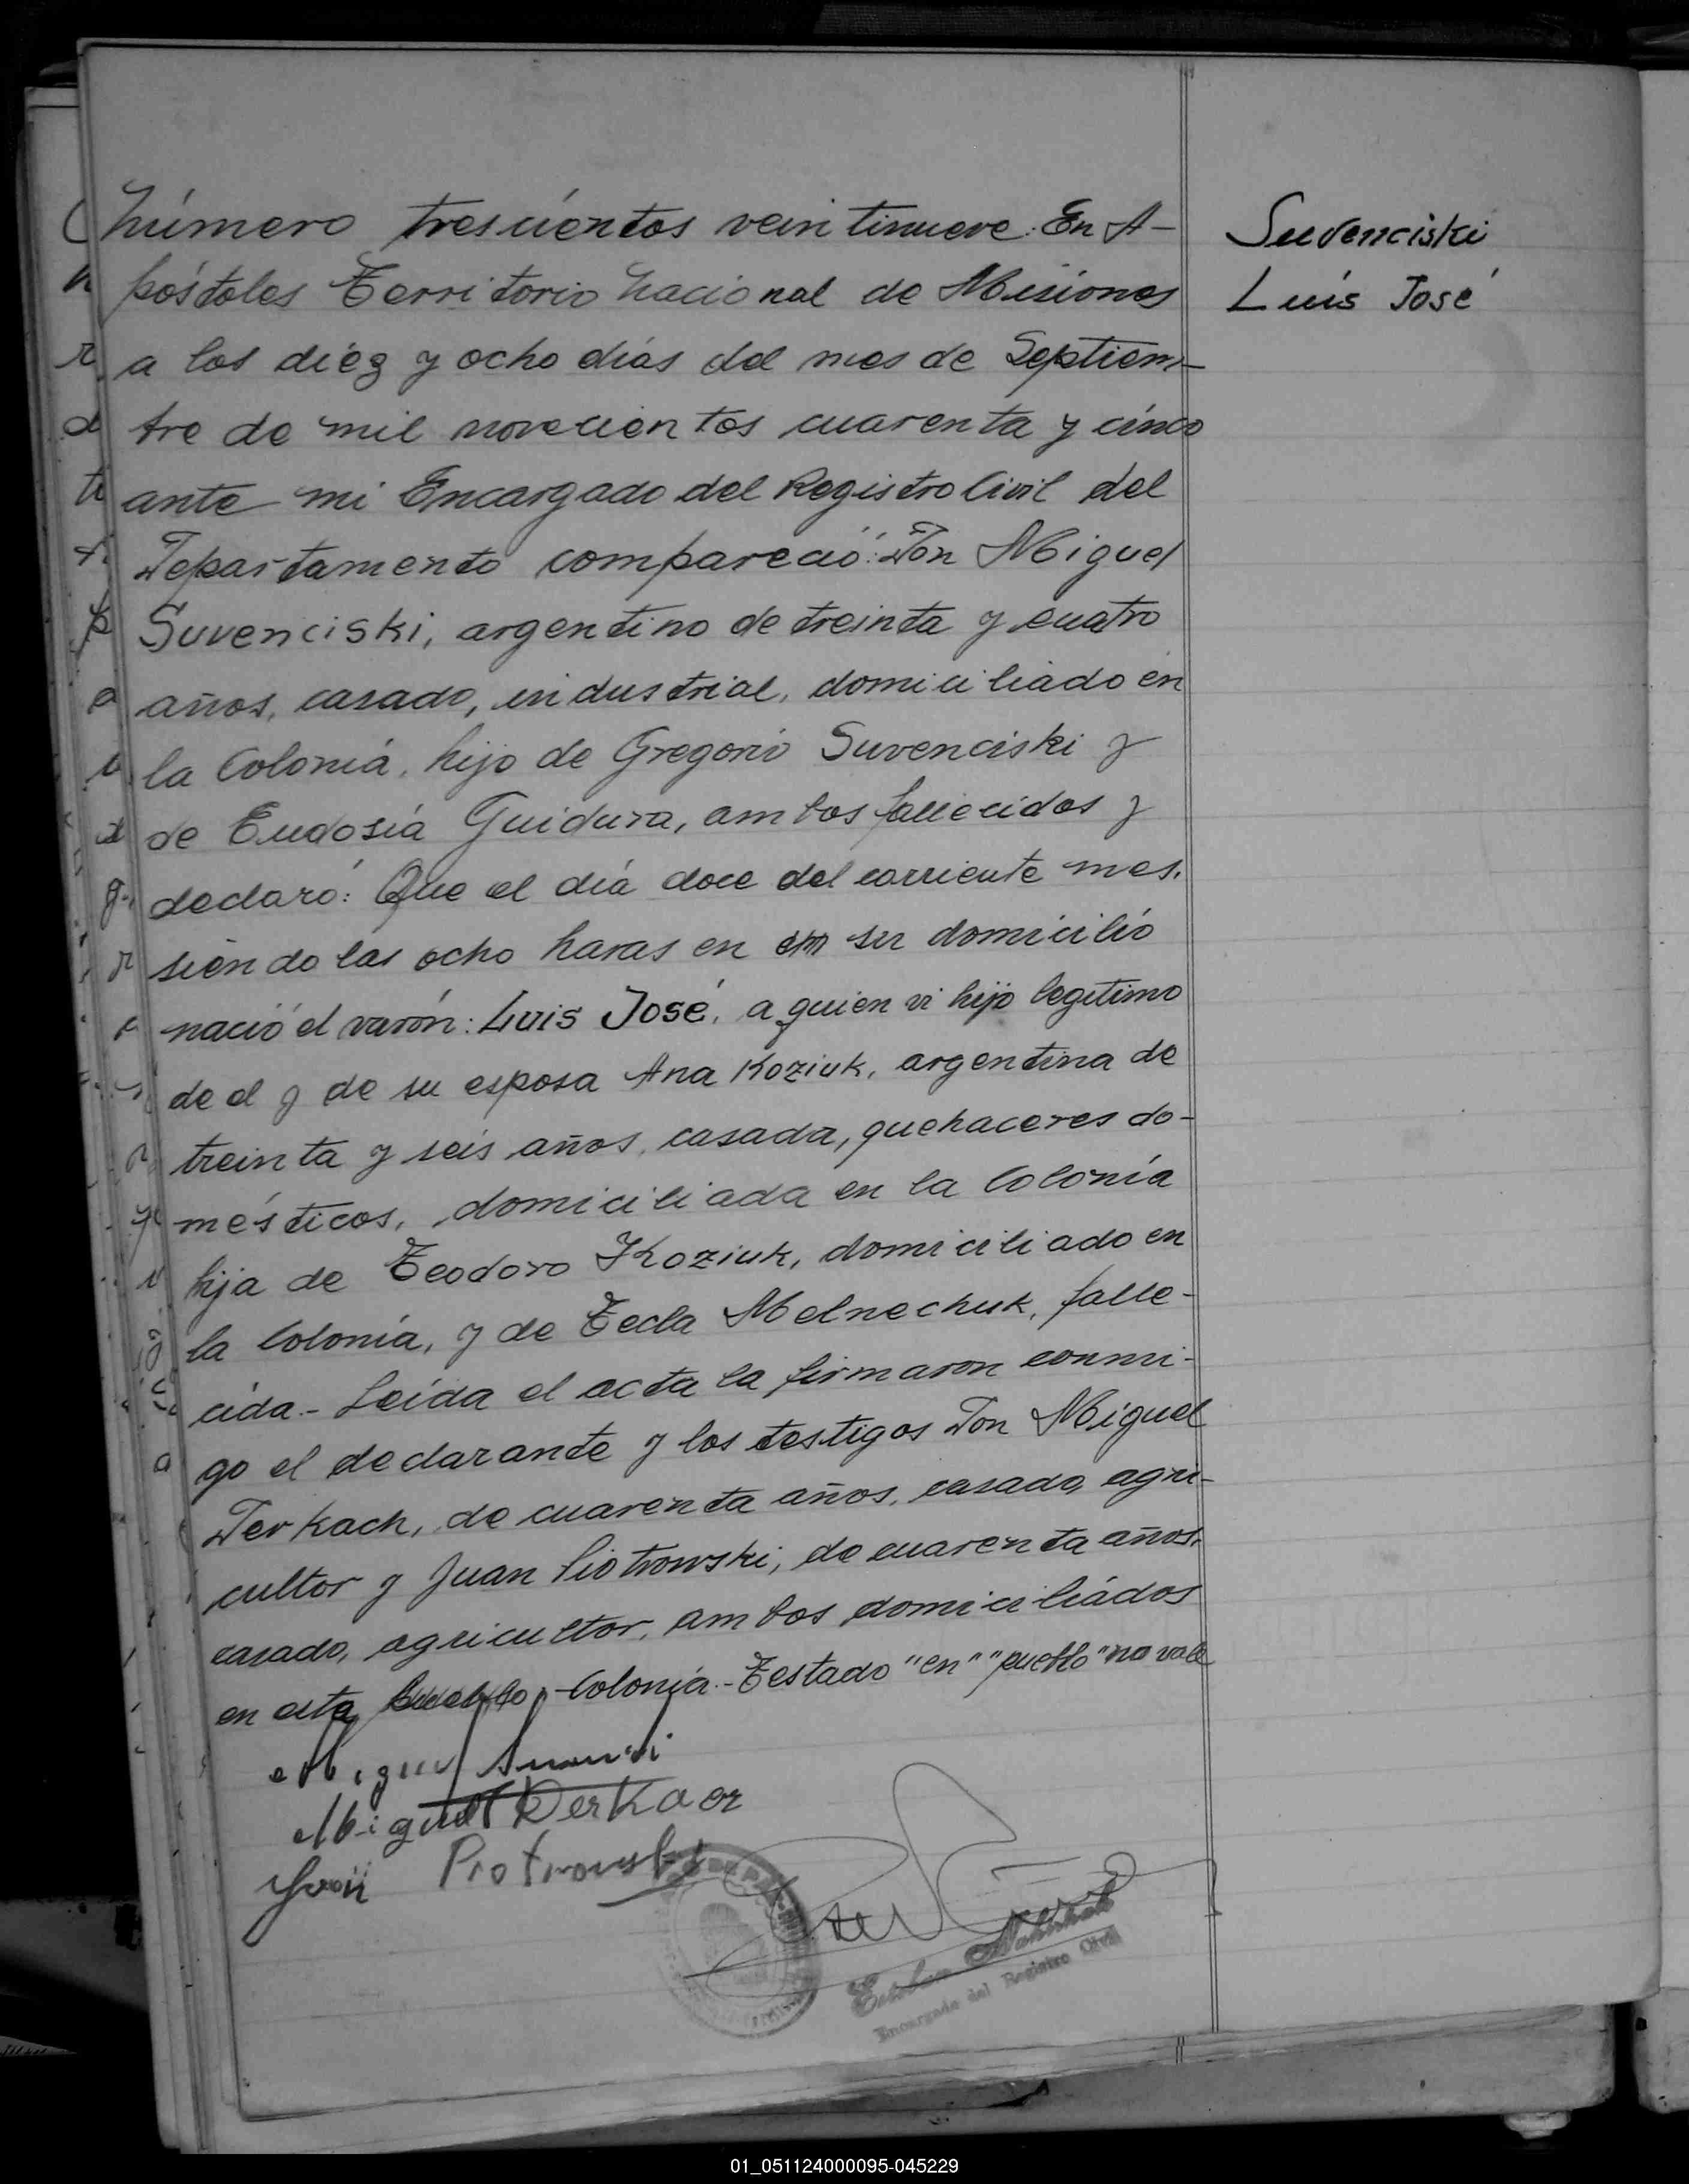 Número trescientos veintinueve. En A-
póstoles Territorio Nacional de Misiones
a los diez y ocho días del mes de Septiem-
bre de mil novecientos cuarenta y cinco
ante mi Encargado del Registro Civil del
Departamento compareció: Don Miguel
Suvenciski, argentino de treinta y cuatro
años, casado, industrial, domiciliado en
la Colonia, hijo de Gregorio Suvenciski y
de Eudosia Guidura, ambos fallecidos y
declaró: Que el día doce del corriente mes,
siendo las ocho horas en en su domicilio
nació el varón: Luis José, a quien vi hijo legítimo
de el y de su esposa Ana Koziuk, argentina de
treinta y seis años, casada, quehaceres do-
mésticos, domiciliada en la Colonia
hija de Teodoro Koziuk, domiciliado en
la Colonia, y de Tecla Melnechuk, falle-
cida.- Leída el acta la firmaron conmi-
go el declarante y los testigos Don Miguel
Derkach, de cuarenta años, casado, agri-
cultor y Juan Piotrowski, de cuarenta años,
casado, agricultor, ambos domiciliados
en esta pueblo Colonia.- Testado "en" "pueblo" no vale
Miguel
Miguel Derkacz
Juan Piotrowski
Esteban
Encargado del Registro Civil
Suvenciski
Luis José
01_051124000095-045229